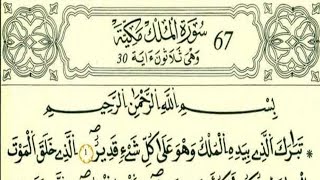 67 سُورَةُ الْمُلْكِ مَكِّيَّةٌ
وَهِيَ ثَلَاثُونَ ءَايَةً 30
بِسْمِ اللَّهِ الرَّحْمَٰنِ الرَّحِيمِ
تَبَارَكَ الَّذِي بِيَدِهِ الْمُلْكُ وَهُوَ عَلَىٰ كُلِّ شَيْءٍ قَدِيرٌ ١ الَّذِي خَلَقَ الْمَوْتَ